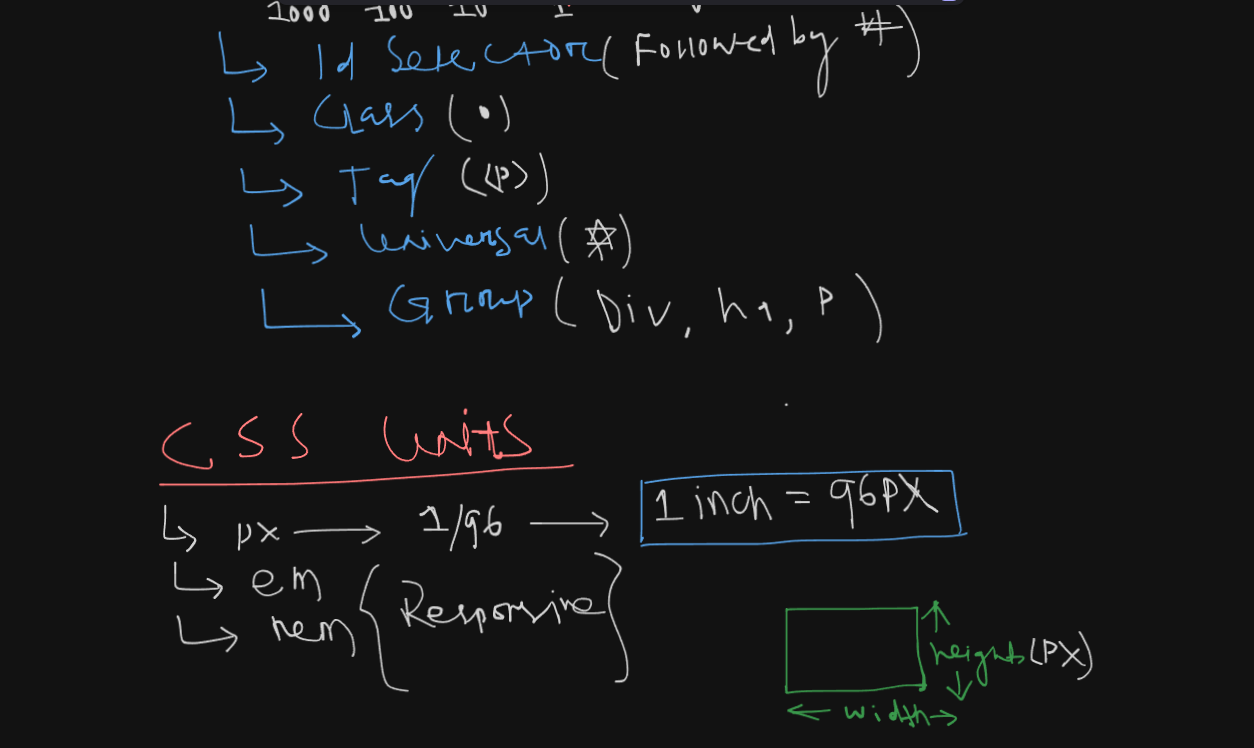 1000 100 10 1
Id Selector (Followed by #)
Class (.)
Tag (<p>)
Universal (*)
Group (Div, h1, P)
CSS Units
px → 1/96 → 1 inch = 96PX
em
rem {Responsive}
height (PX)
← width →